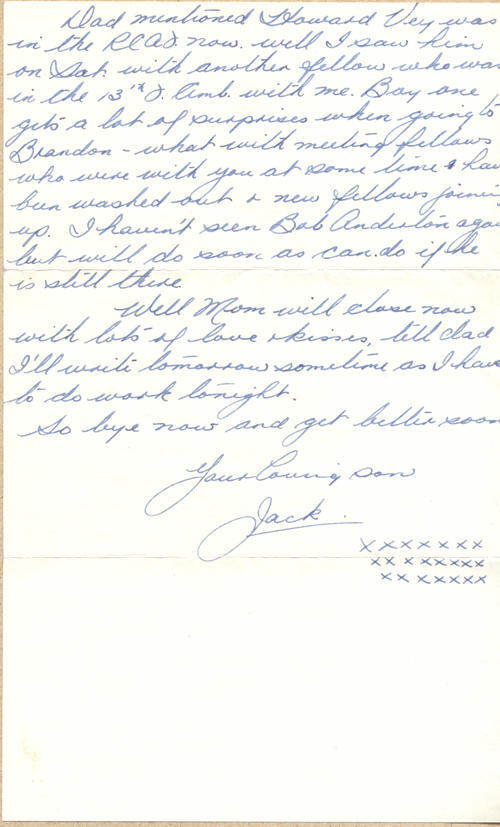 Dad mentioned Howard Vey was
in the RCAF. now. well I saw him
on Sat. with another fellow who was
in the 13th F. Amb. with me. Boy one
gets a lot of surprises when going to
Brandon - what with meeting fellows
who were with you at some time & have
been washed out & new fellows joining
up. I haven't seen Bob Anderton again
but will do soon as can do if he
is still there
Well Mom will close now
with lots of love & kisses, tell dad
I'll write tomorrow sometime as I have
to do work tonight.
So bye now and get better soon
Your loving son
Jack.
xxxxxxx
xxxxxxxx
xxxxxxx